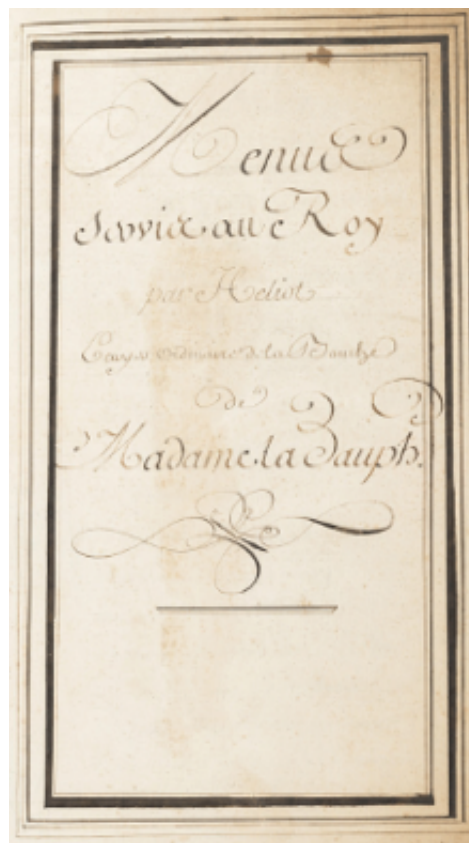 Menue
Servie au Roy
par Heliot
Ecuyer ordinaire de la Bouche
de
Madame la Dauph.